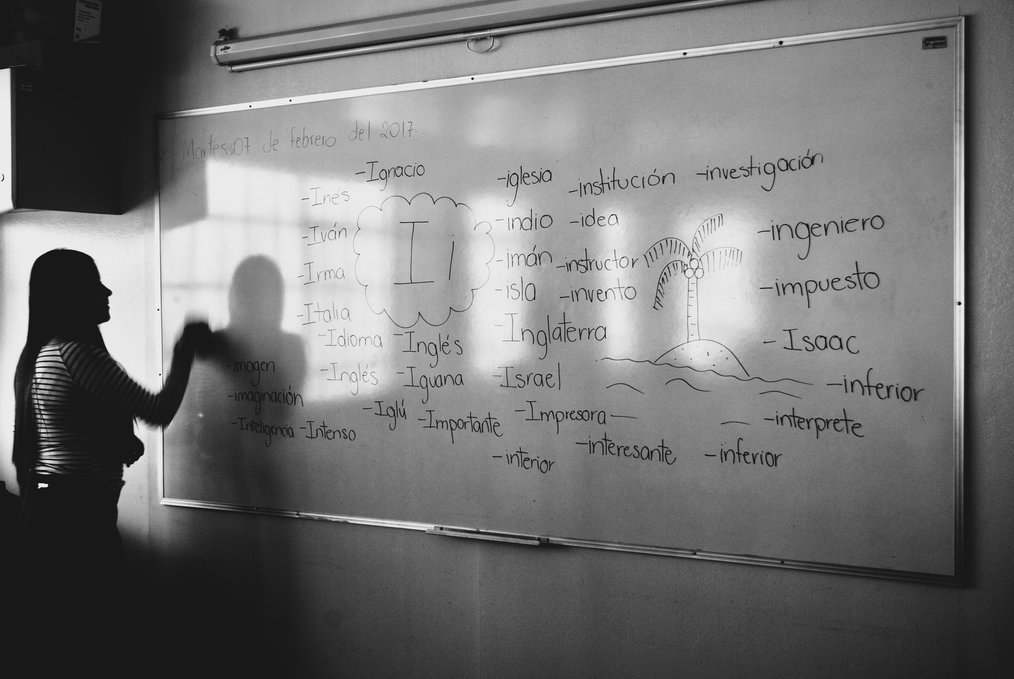 Martes 07 de febrero del 2017
-Ignacio
-Inés
-Iván
-Irma
-Italia
-Idioma
-Inglés
I i
-Inglés
-Iguana
-Iglú
-Importante
-imagen
-imaginación
-Inteligencia -Intenso
-iglesia -institución -investigación
-indio -idea
-imán -instructor
-isla -invento
-Inglaterra
-Israel
-Impresora
-interior -interesante -inferior
-ingeniero
-impuesto
-Isaac
-inferior
-interprete